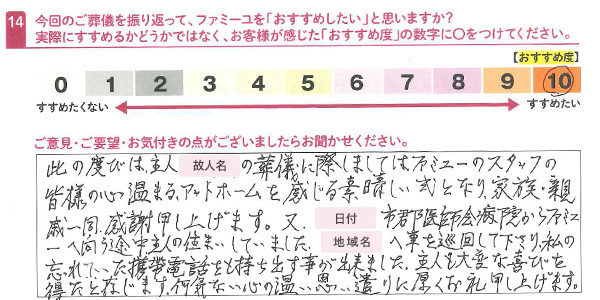 14 今回のご葬儀を振り返って、ファミーユを「おすすめしたい」と思いますか?
実際にすすめるかどうかではなく、お客様が感じた「おすすめ度」の数字に○をつけてください。
【おすすめ度】
0 1 2 3 4 5 6 7 8 9 10
すすめたくない すすめたい
ご意見・ご要望・お気付きの点がございましたらお聞かせください。
此の度びは、主人 故人名 の葬儀に際しましてはファミューのスタッフの
皆様の心温まるアットホームを感じる素晴しい式となり家族・親
戚一同感謝申し上げます。又、 日付 市郡医師会病院からファミュ
ーへ向う途中主人の住まいしていました、 地域名 へ車を巡回して下さり、私の
忘れていた携帯電話をも持ち出す事が出来ました。主人も大変な喜びを
得たと存じます。何気ない心の温い思い遣りに厚くお礼申し上げます。